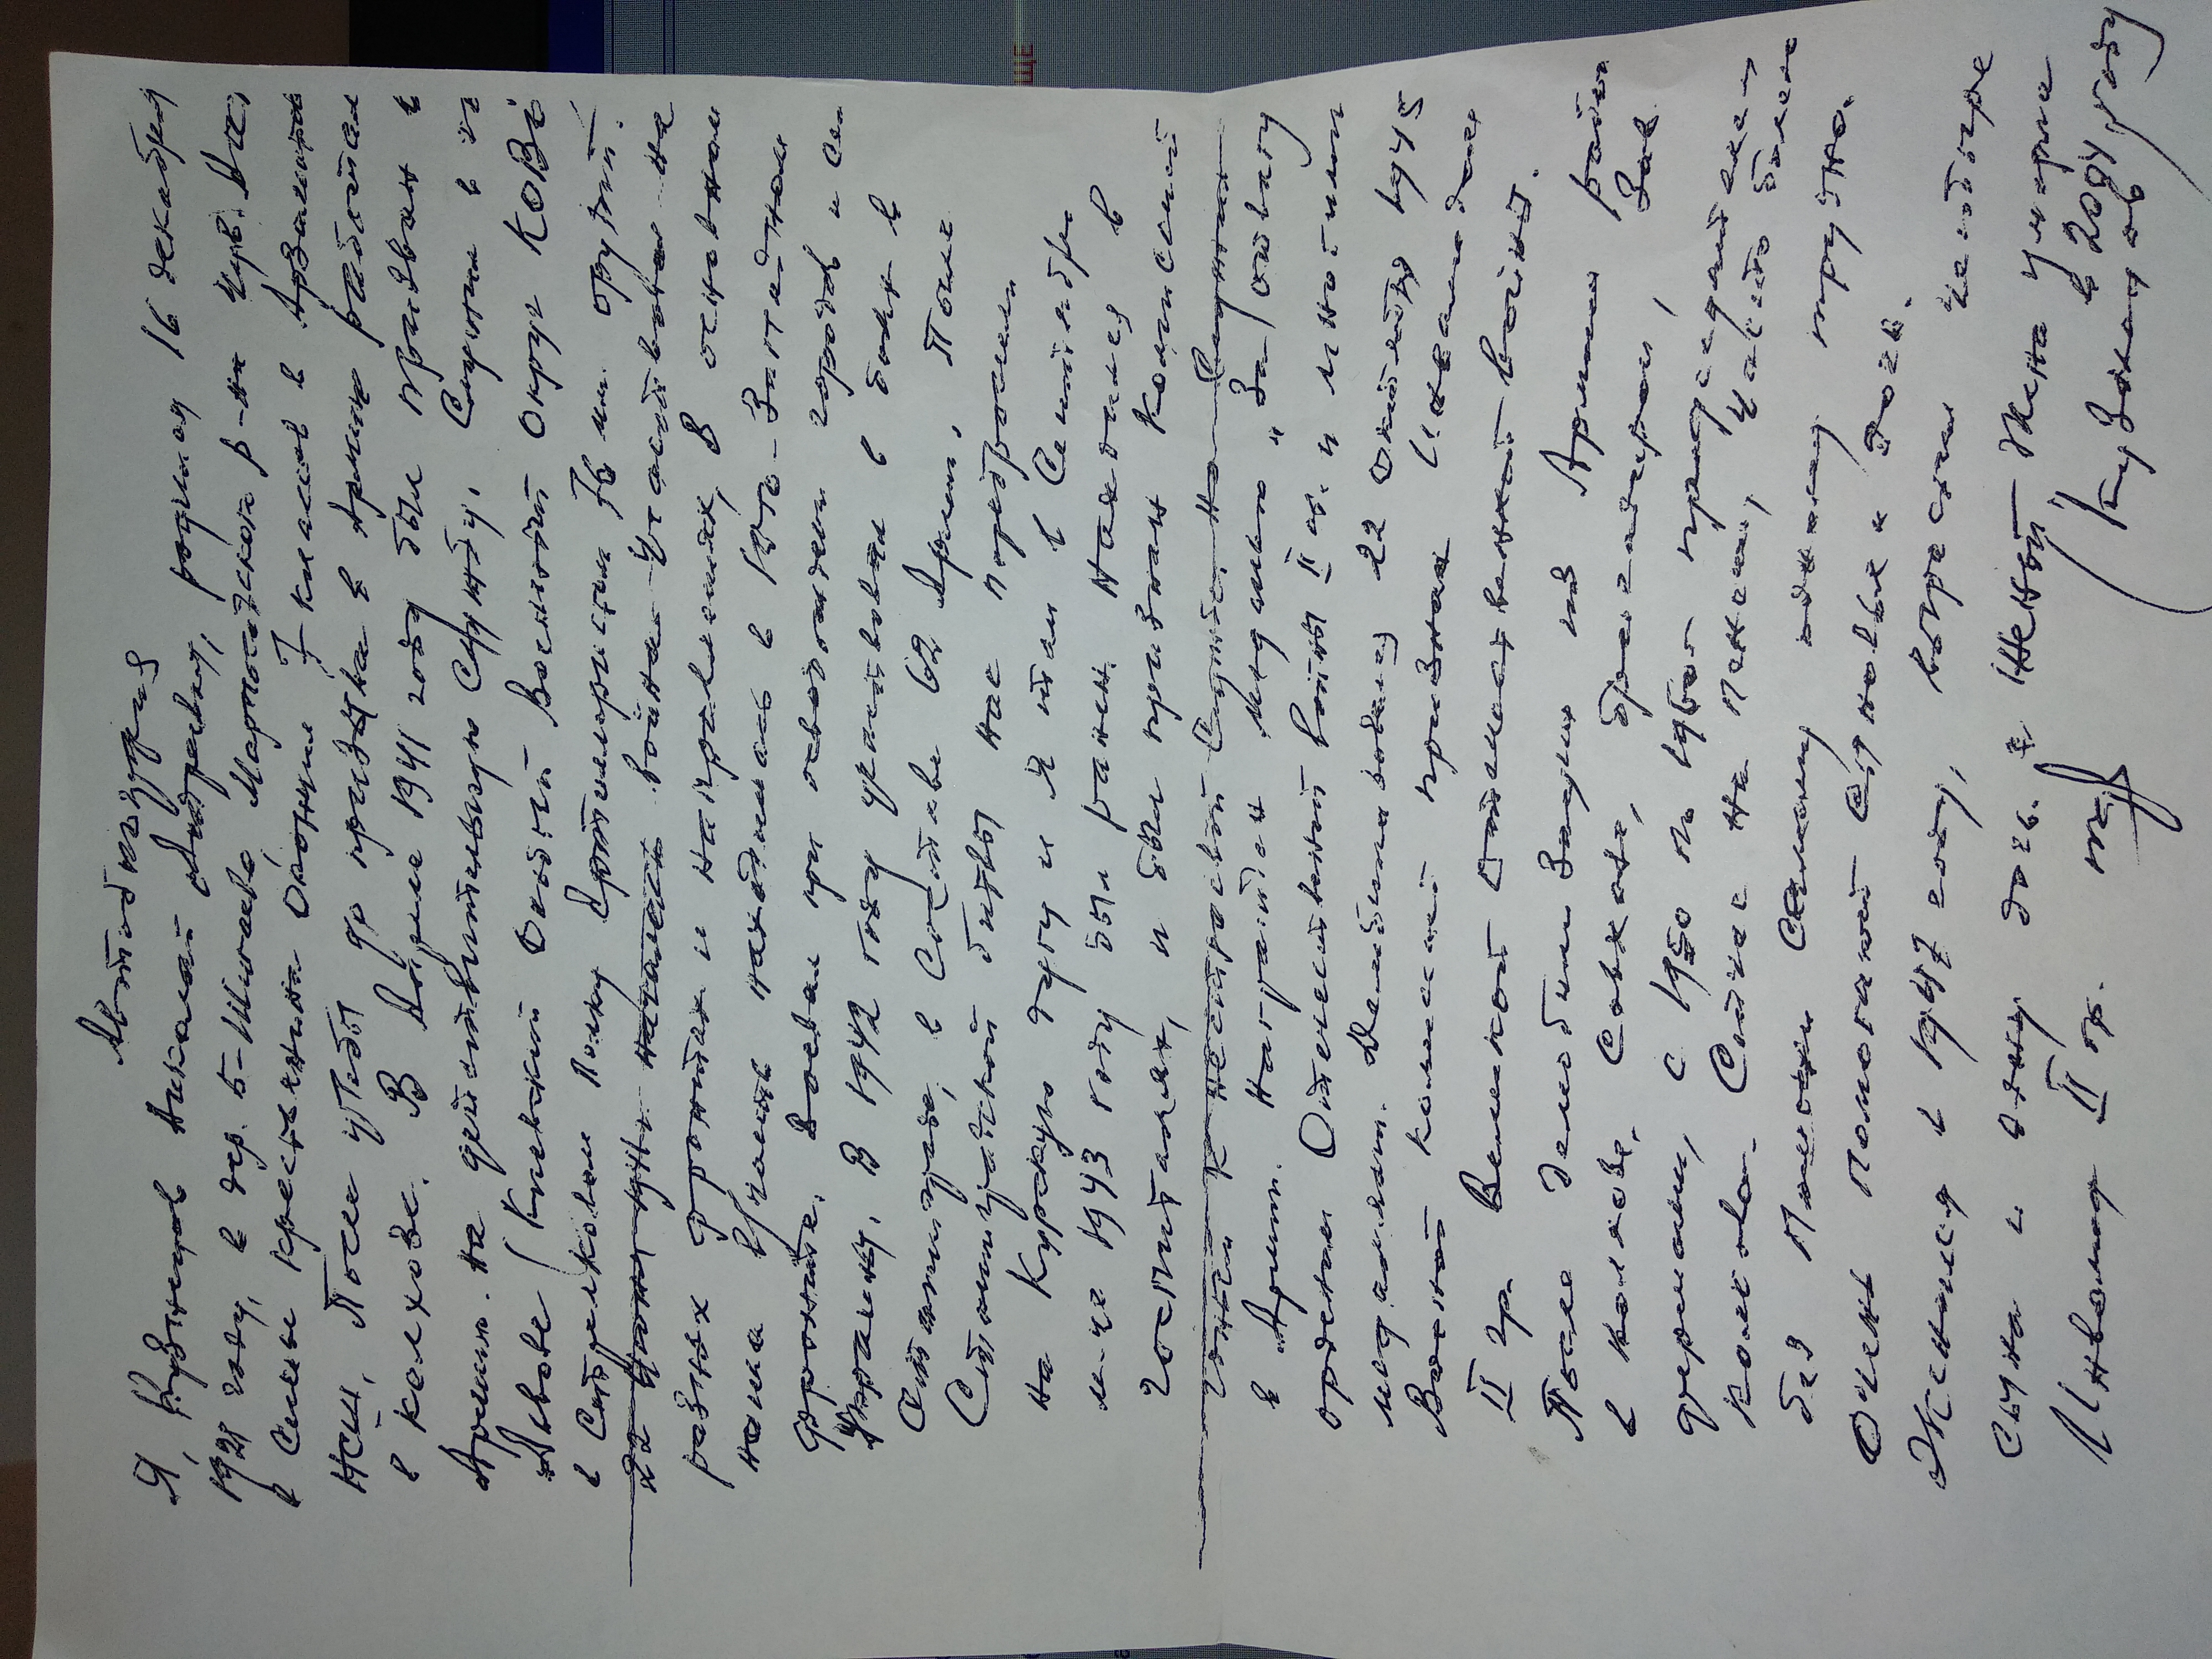 Автобиография
Я, Кузнецов Николай Андреевич, родился 16 декабря
1921 году, в дер. Б-Шигаево Марпосадского р-на Чув. Асс
в семье крестьянина Окончил 7 классов в
НСШ. После учебы до призыва в Армию работал
в колхозе. В Апреле 1941 году был призван в
Армию. на действительную службу. Служил в
Львове (Киевский Особый Военный Округ КОВО)
в Стрелковом Полку Артиллеристом 76 мм. орудий.
22 Июня началась война участвовал на
разных фронтах и направлениях, В основном
наша часть находилась в Юго-Западном
фронте. Воевал при освобождении городов и сел
Украины. В 1942 году участвовал в боях в
Сталинграде, в Составе 62 Армии, После
Сталинградской битвы нас перебросили
на Курскую дугу и я там в Сентябре
м-це 1943 году был ранен. Находился в
госпиталях, и был признан комиссией
годным к нестроевой Службе. но Служил
в Армии. Награжден медалью "За Отвагу
орденом Отечественной войны II ст. и многими
медалями. Демобилизовался 22 Октября 1945
Военной комиссией признан Инвалидом
II гр. Великой Отечественной войной.
После демобилизации из Армии работ
в колхозе. Совхозе, бригадиром, Зав.
фермами, с 1950 по 1960г председателем
колхоза. Сейчас На Пенсии, Часто болею
без Помощи Самому одному трудно.
Очень Помогают Сыновья и дочь.
Женился в 1947 году, вырастил четвере
сына и одну дочь. Жена умерла
в 2004 году
Инвалид II гр.
(Кузнецов